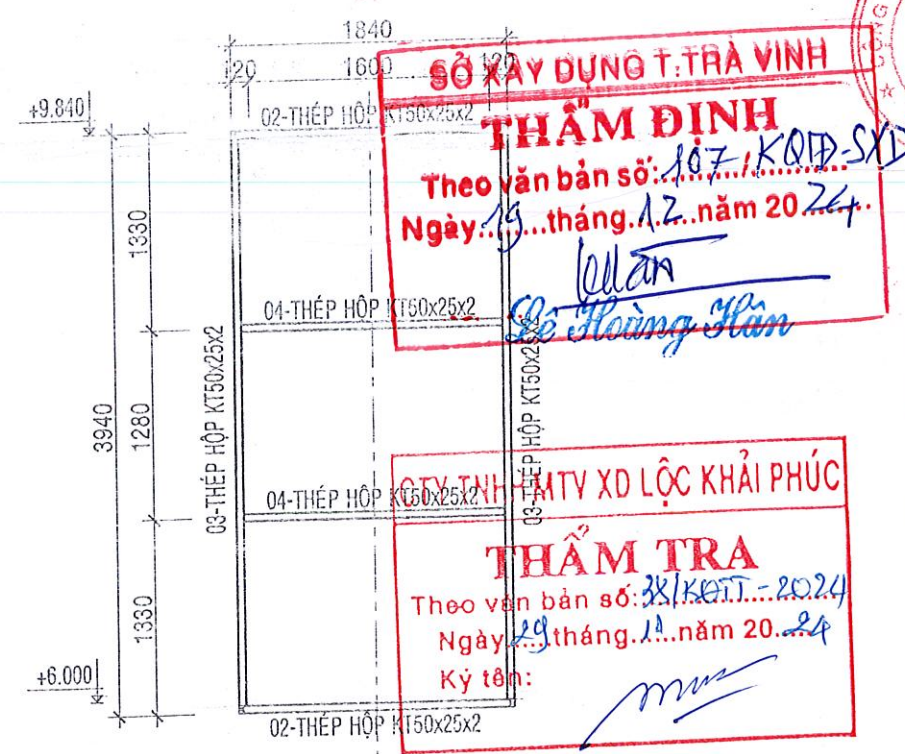 1840
120 1600 120
+9.840
02-THÉP HỘP KT50x25x2
1330
04-THÉP HỘP KT50x25x2
03-THÉP HỘP KT50x25x2
03-THÉP HỘP KT50x25x2
3940
1280
04-THÉP HỘP KT50x25x2
1330
+6.000
02-THÉP HỘP KT50x25x2
SỞ XÂY DỰNG T.TRÀ VINH
THẨM ĐỊNH
Theo văn bản số: 107/KQTĐ-SXD
Ngày 19 tháng 12 năm 2024
Lê Hoàng Hân
CTY TNHH MTV XD LỘC KHẢI PHÚC
THẨM TRA
Theo văn bản số: /KQTT-2024
Ngày 29 tháng 11 năm 20 24
Ký tên: